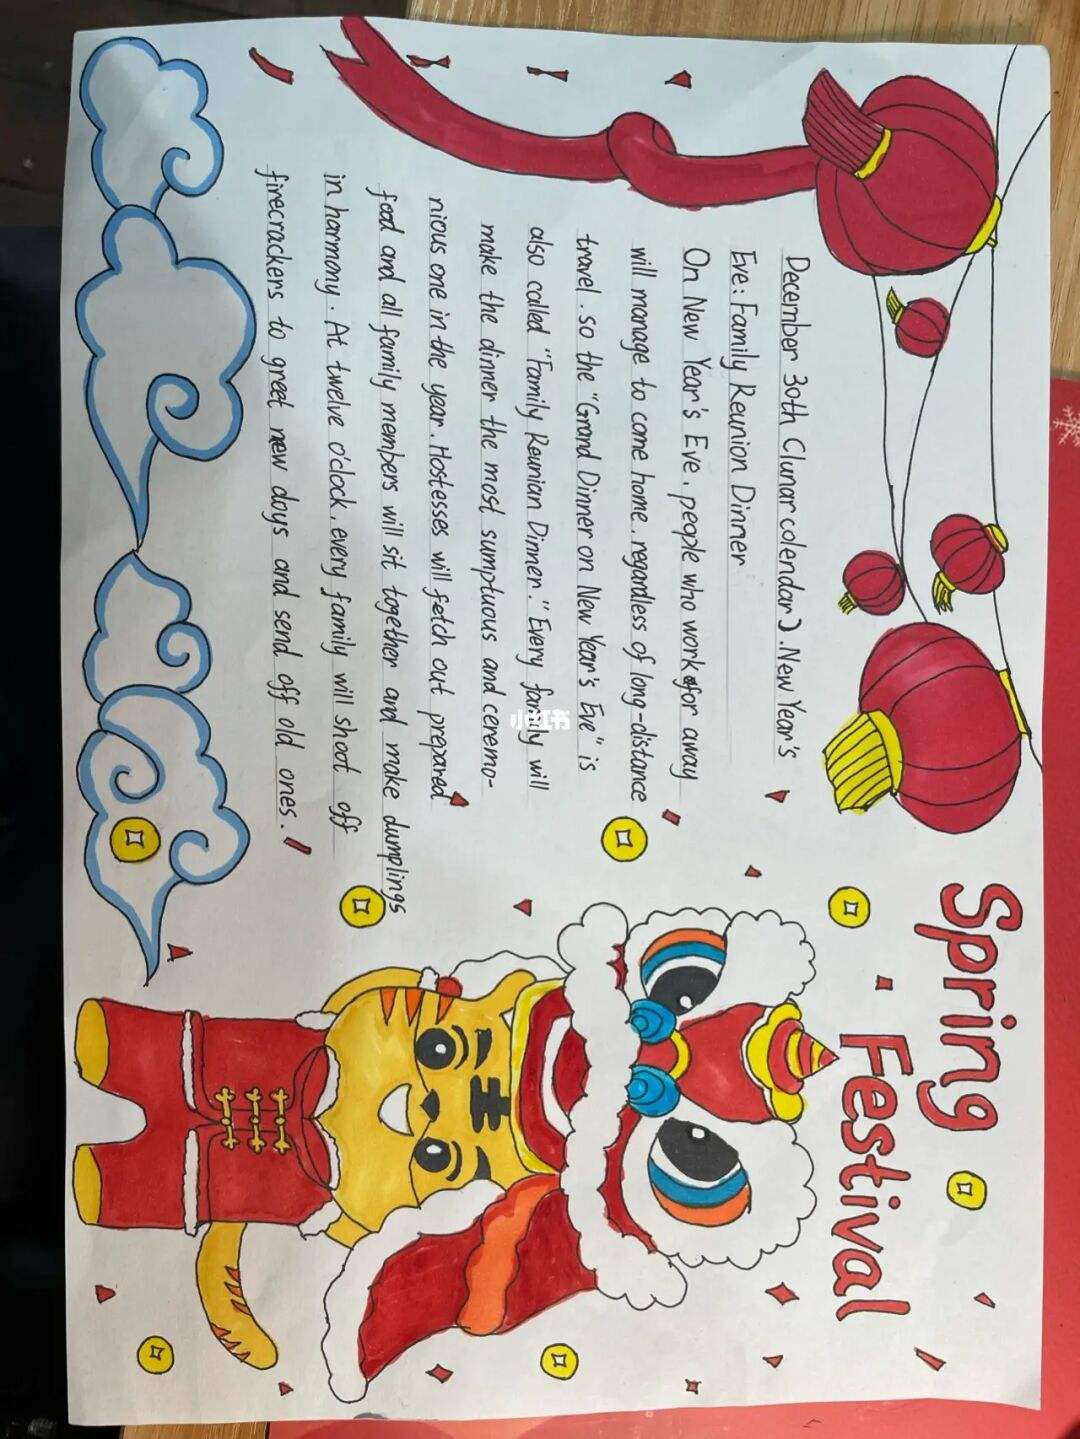 Spring
Festival
December 30th Clunar colendar). New Year's
Eve: Family Reunion Dinner
On New Year's Eve, people who work for away
will manage to come home, regardless of long-distance
travel. so the "Grand Dinner on New Year's Eve" is
also called "Family Reunian Dinner." Every family will
make the dinner the most sumptuous and ceremo-
nious one in the year. Hostesses will fetch out prepared
food and all family members will sit together and make dumplings
in harmony. At twelve o'clock, every family will shoot off
firecrackers to greet new days and send off old ones.
王
小红书